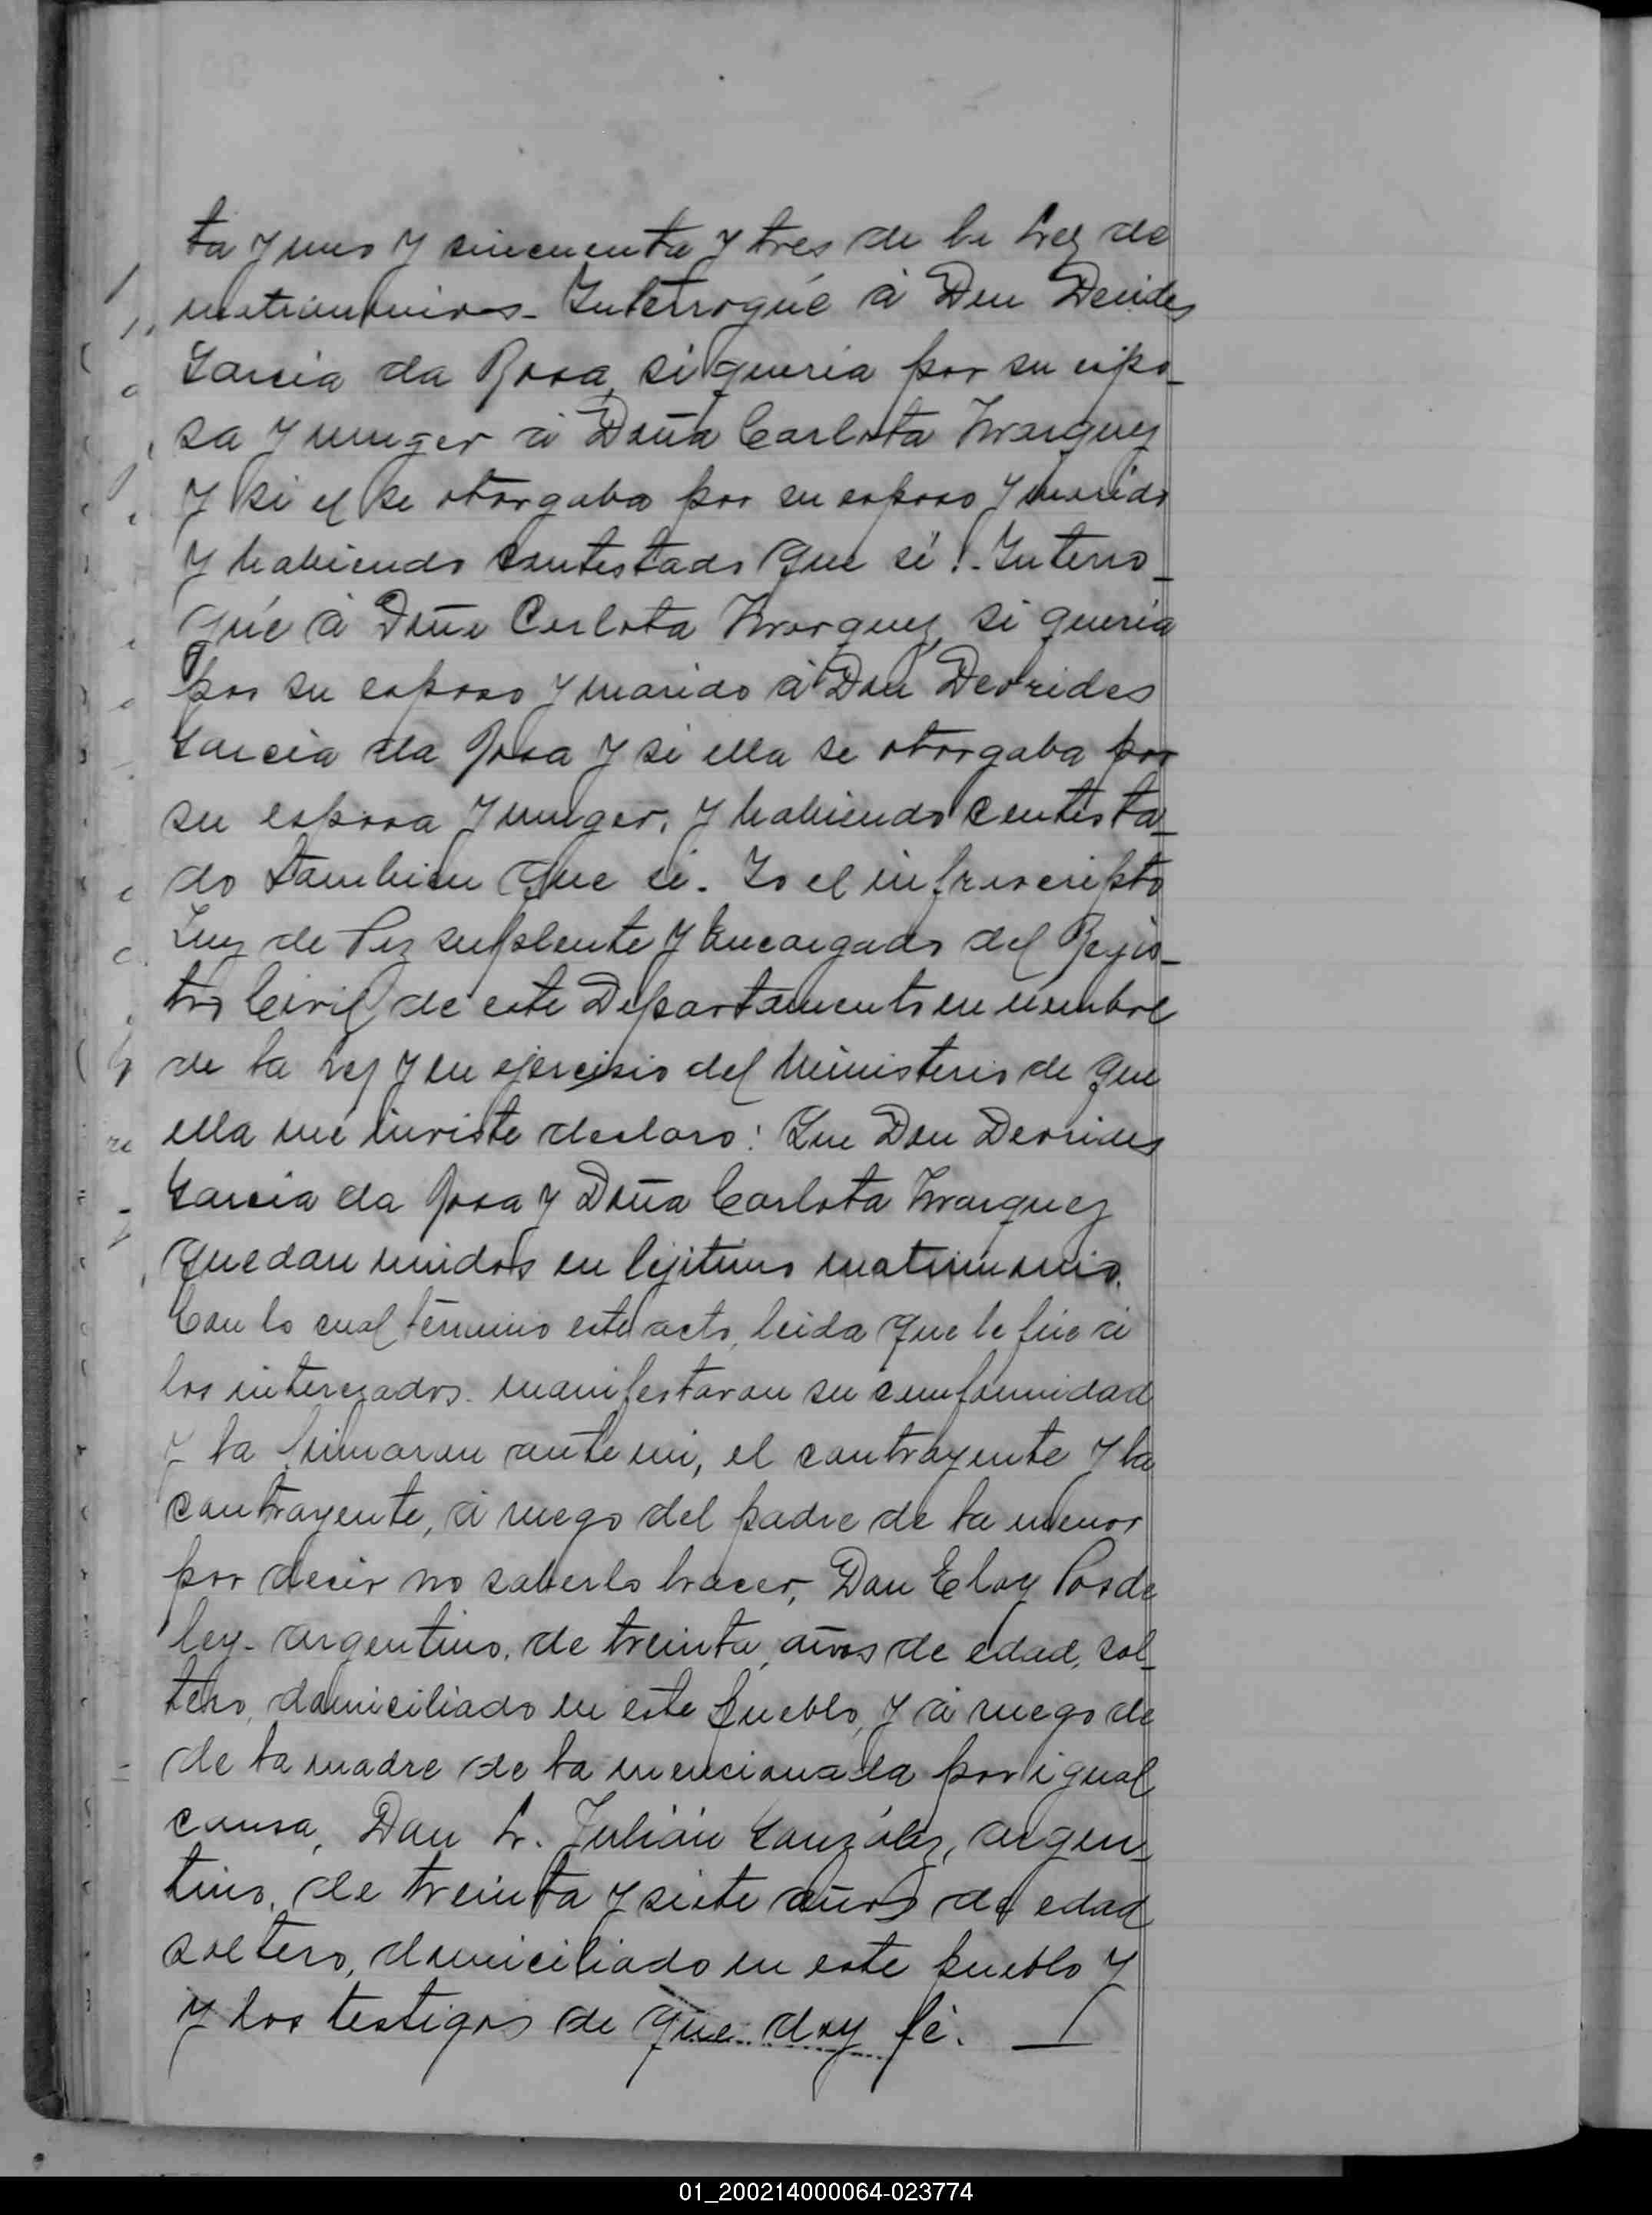 ta y uno y cincuenta y tres de la Ley de
matrimonios- Interrogué à Don Deoides
Garcia da Rosa, si queria por su espo_
sa y muger à Doña Carlota Marquez
y si el se otorgaba por su esposo y marido
y habiendo contestado que si!- Interro_
gué à Doña Carlota Marquez, si queria
por su esposo y marido à Don Deorides
Garcia da Rosa y si ella se otorgaba por
su esposa y muger, y habiendo contesta_
do tambien que si- Yo el infrascripto
Juez de Paz suplente y Encargado del Rejis_
tro Civil de este Departamento en nombre
de la Ley y en ejercisio del Ministerio de que
ella me inviste declaro: Que Don Deorides
Garcia da Rosa y Doña Carlota Marquez
quedan unidos en lejitimo matrimonio.
Con lo cual términó este acto, leida que le fué à
los interezados- manifestaron su conformidad
y la firmaron ante mi, el contrayente y la
contrayente, à ruego del padre de la menor
por decir no saberlo hacer, Don Eloy Posde
ley- argentino, de treinta años de edad, sol_
tero, domiciliado en este pueblo, y à ruego de
de la madre de la mencionada por igual
causa, Don L. Julián González, argen_
tino, de treinta y siete años de edad
soltero, domiciliado en este pueblo y
y los testigos de que doy fé.
01_200214000064-023774